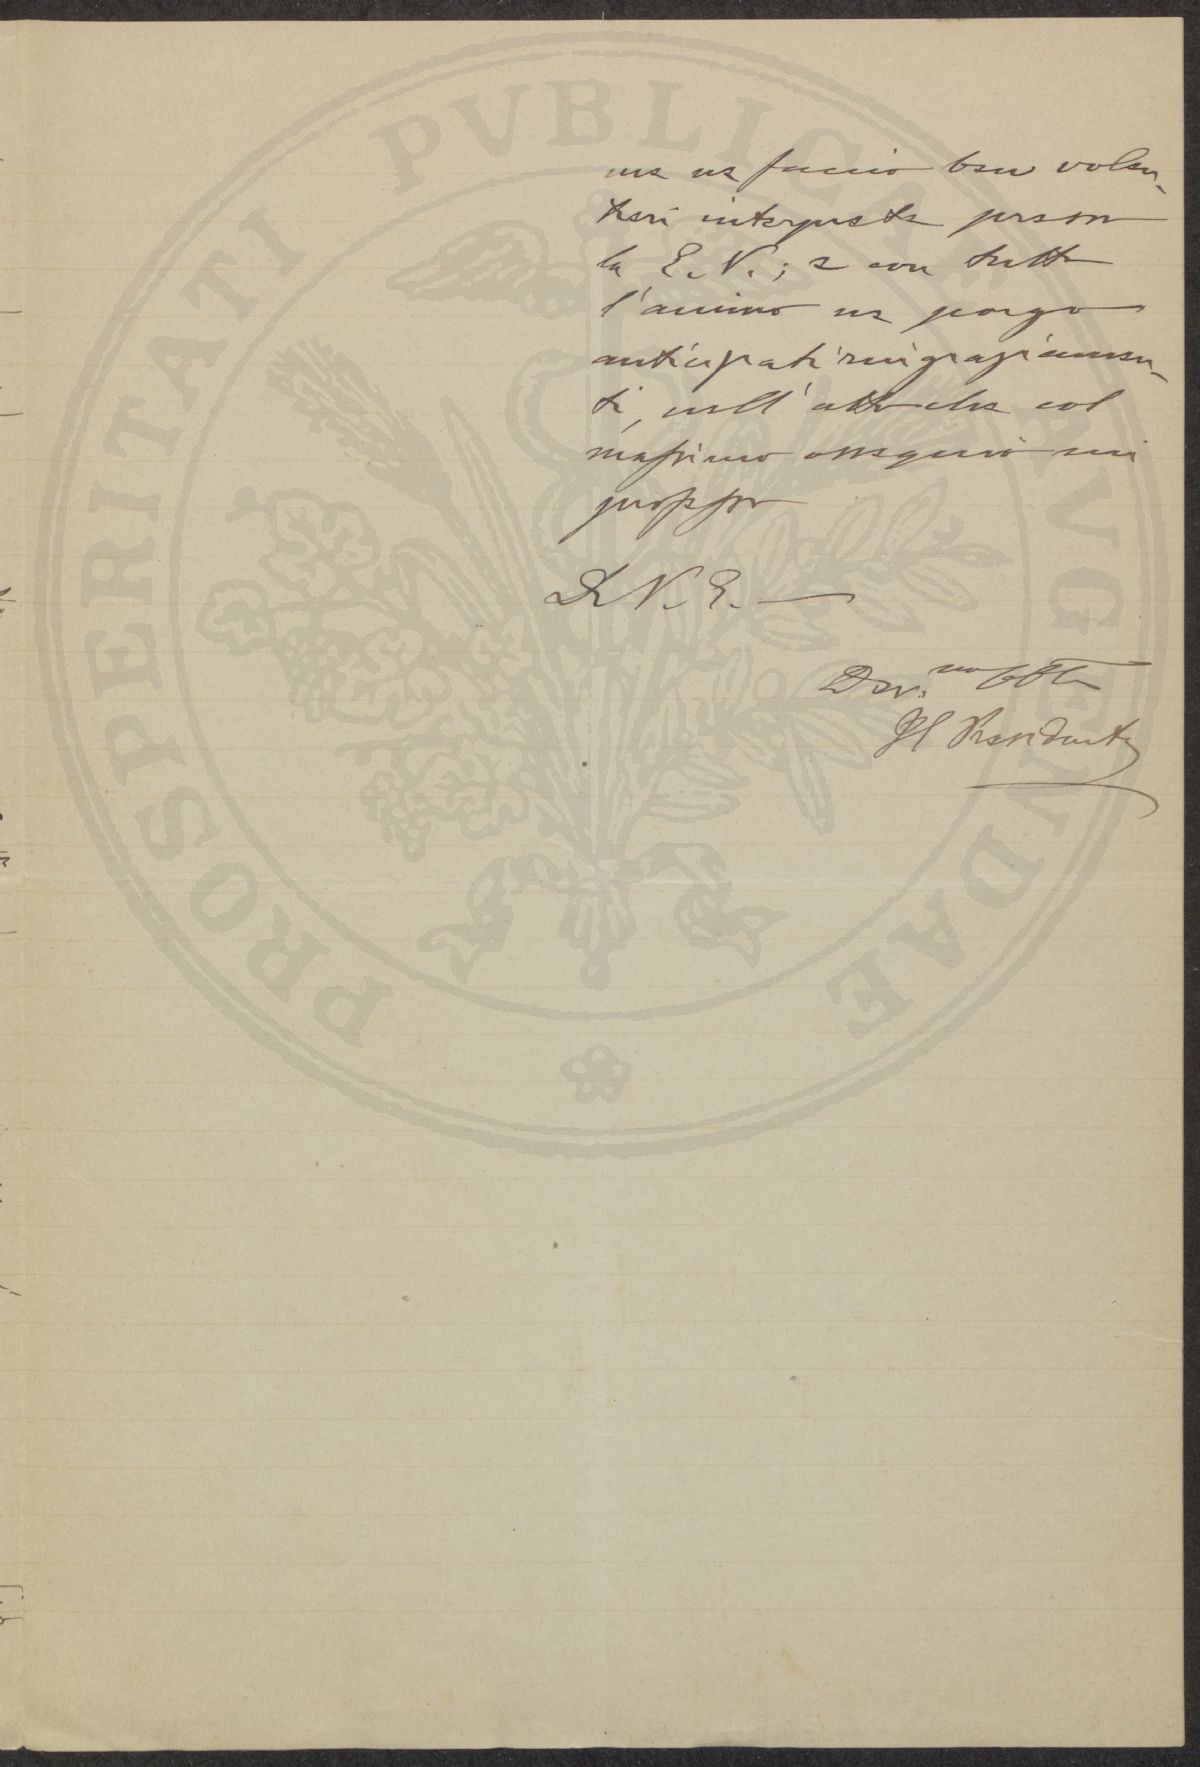 me ne faccio ben volen-
tieri interprete presso
la E. V.; e con tutto
l'animo ne porgo
anticipati ringraziamen-
ti, nell'atto che col
massimo ossequio mi
professo
Di V. E. —
Dev.mo Obb.
Il Presidente
PROSPERITATI PVBLICAE AVGENDAE